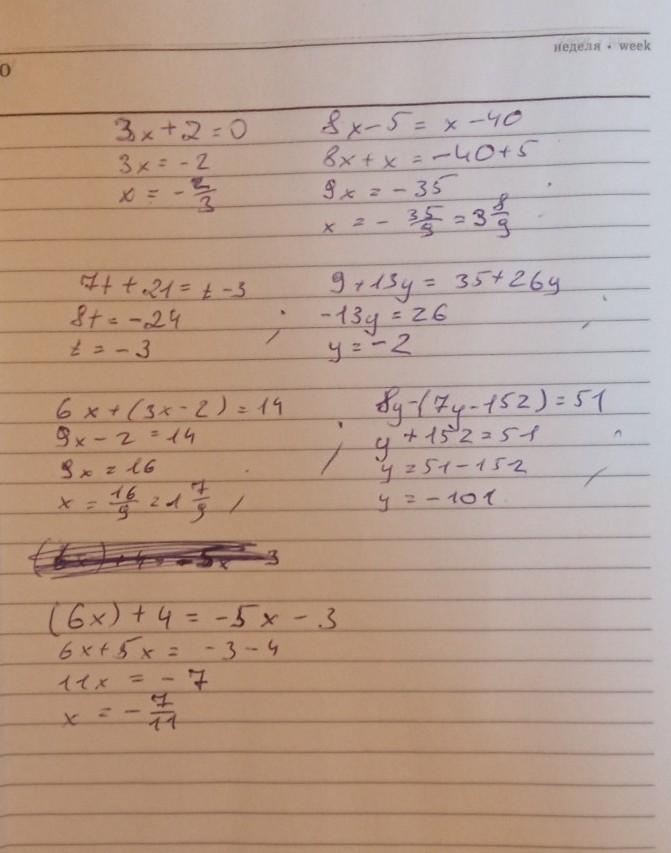 неделя • week
3x + 2 = 0
3x = -2
x = -2/3
8x - 5 = x - 40
8x + x = -40 + 5
9x = -35
x = - 35/9 = 3 8/9
7t + 21 = t - 3
8t = -24
t = -3
9 + 13y = 35 + 26y
-13y = 26
y = -2
6x + (3x - 2) = 14
9x - 2 = 14
9x = 16
x = 16/9 = 1 7/9
8y - (7y - 152) = 51
y + 152 = 51
y = 51 - 152
y = -101
(6x) + 4 = -5x - 3
(6x) + 4 = -5x - 3
6x + 5x = -3 - 4
11x = -7
x = -7/11